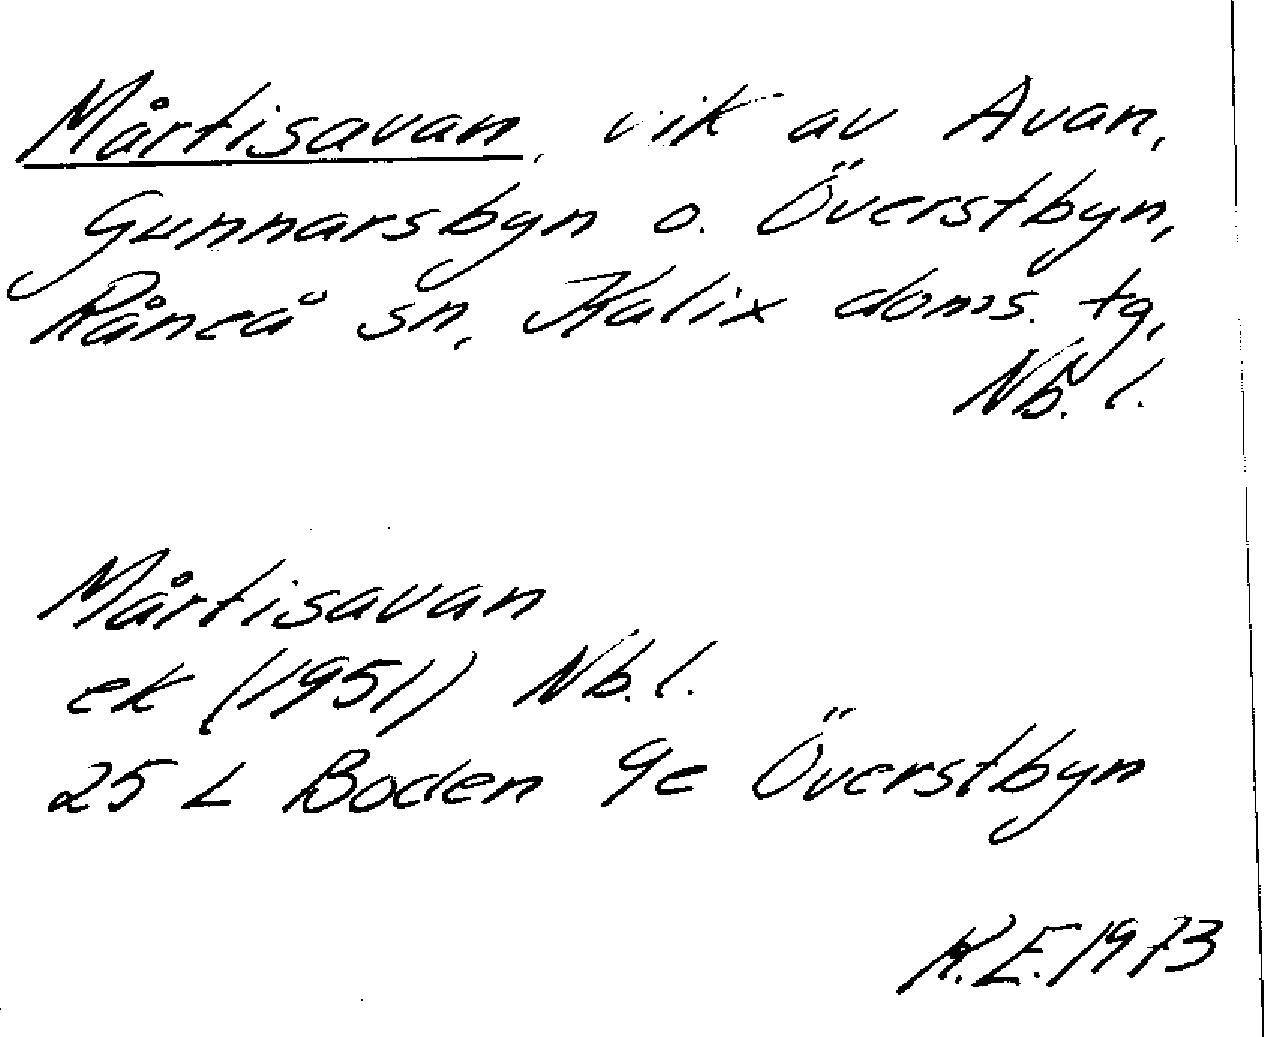 Mårtisavan, vik av Avan,
Gunnarsbyn o. Överstbyn,
Råneå sn, Kalix doms. tg,
Nb. l.
Mårtisavan
ek (1951) Nb. l.
25 L Boden 9e Överstbyn
K.E. 1973